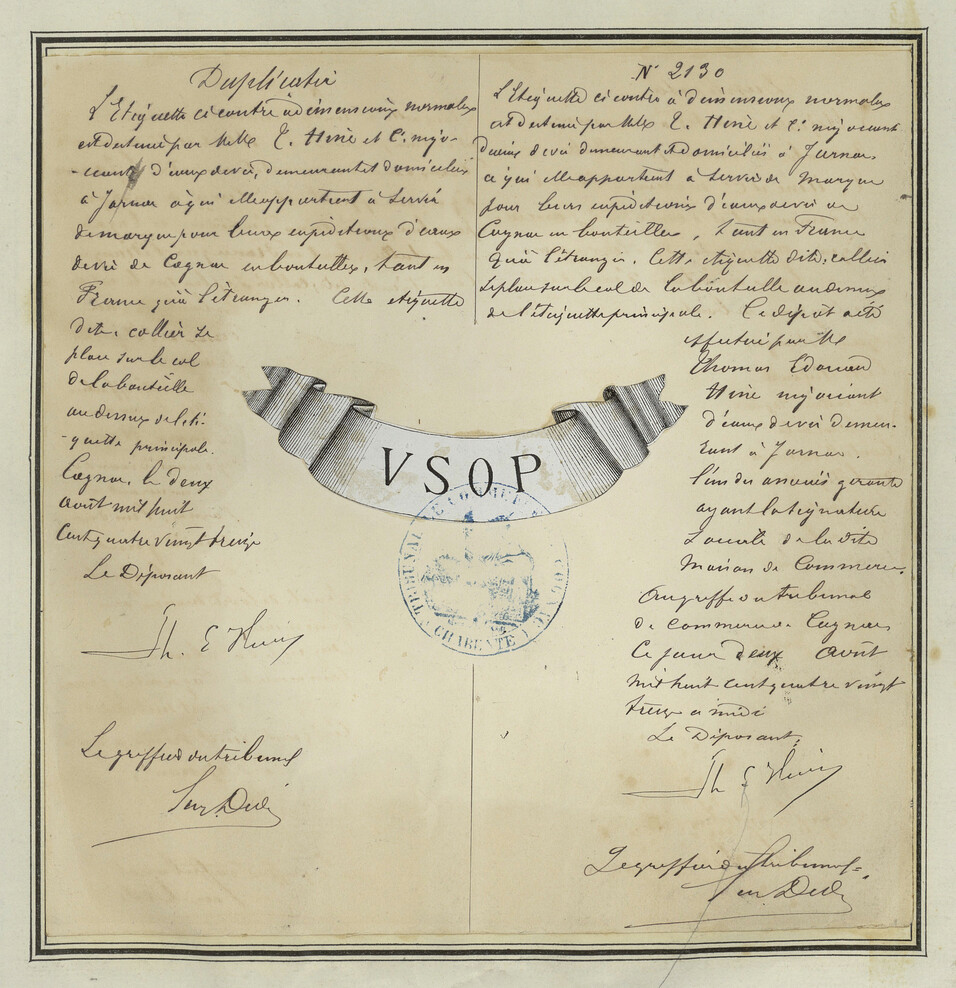 Duplicata
L'Etiquette ci contre à dimensions normales
est destiné par MM. T. Hine et Cie négo-
-ciants d'eaux de vie, demeurant et domiciliés
à Jarnac à qui elle appartient à servir
de marque pour leurs expéditions d'eaux
de vie de Cognac en bouteilles, tant en
France qu'à l'étranger. Cette etiquette
dite collier se
place sur le col
de la bouteille
au dessus de l'éti-
-quette principale.
Cognac, le deux
août mil huit
cent quatre vingt treize
Le Déposant
Th. E Hine
Le greffier du tribunal
N° 2130
L'Etiquette ci contre à dimensions normales
est destiné par MM. T. Hine et Cie négociants
d'eaux de vie demeurant et domiciliés à Jarnac
a qui elle appartient à servir de marque
pour leurs expéditions d'eaux de vie de
Cognac en bouteilles, tant en France
qu'à l'étranger. Cette etiquette dite, collier
se place sur le col de la bouteille au dessus
de l'étiquette principale. Ce dépôt a été
effectué par M.
Thomas Edouard
Hine négociant
d'eaux de vie demeu-
rant à Jarnac.
l'un des associés gérants
ayant la signature
sociale de la dite
Maison de Commerce.
Au greffe du tribunal
de commerce de Cognac
Ce jour deux Août
mil huit cent quatre vingt
treize à midi
Le Déposant,
Th E Hine
Le greffier du tribunal
VSOP
TRIBUNAL DE COMMERCE COGNAC
CHARENTE